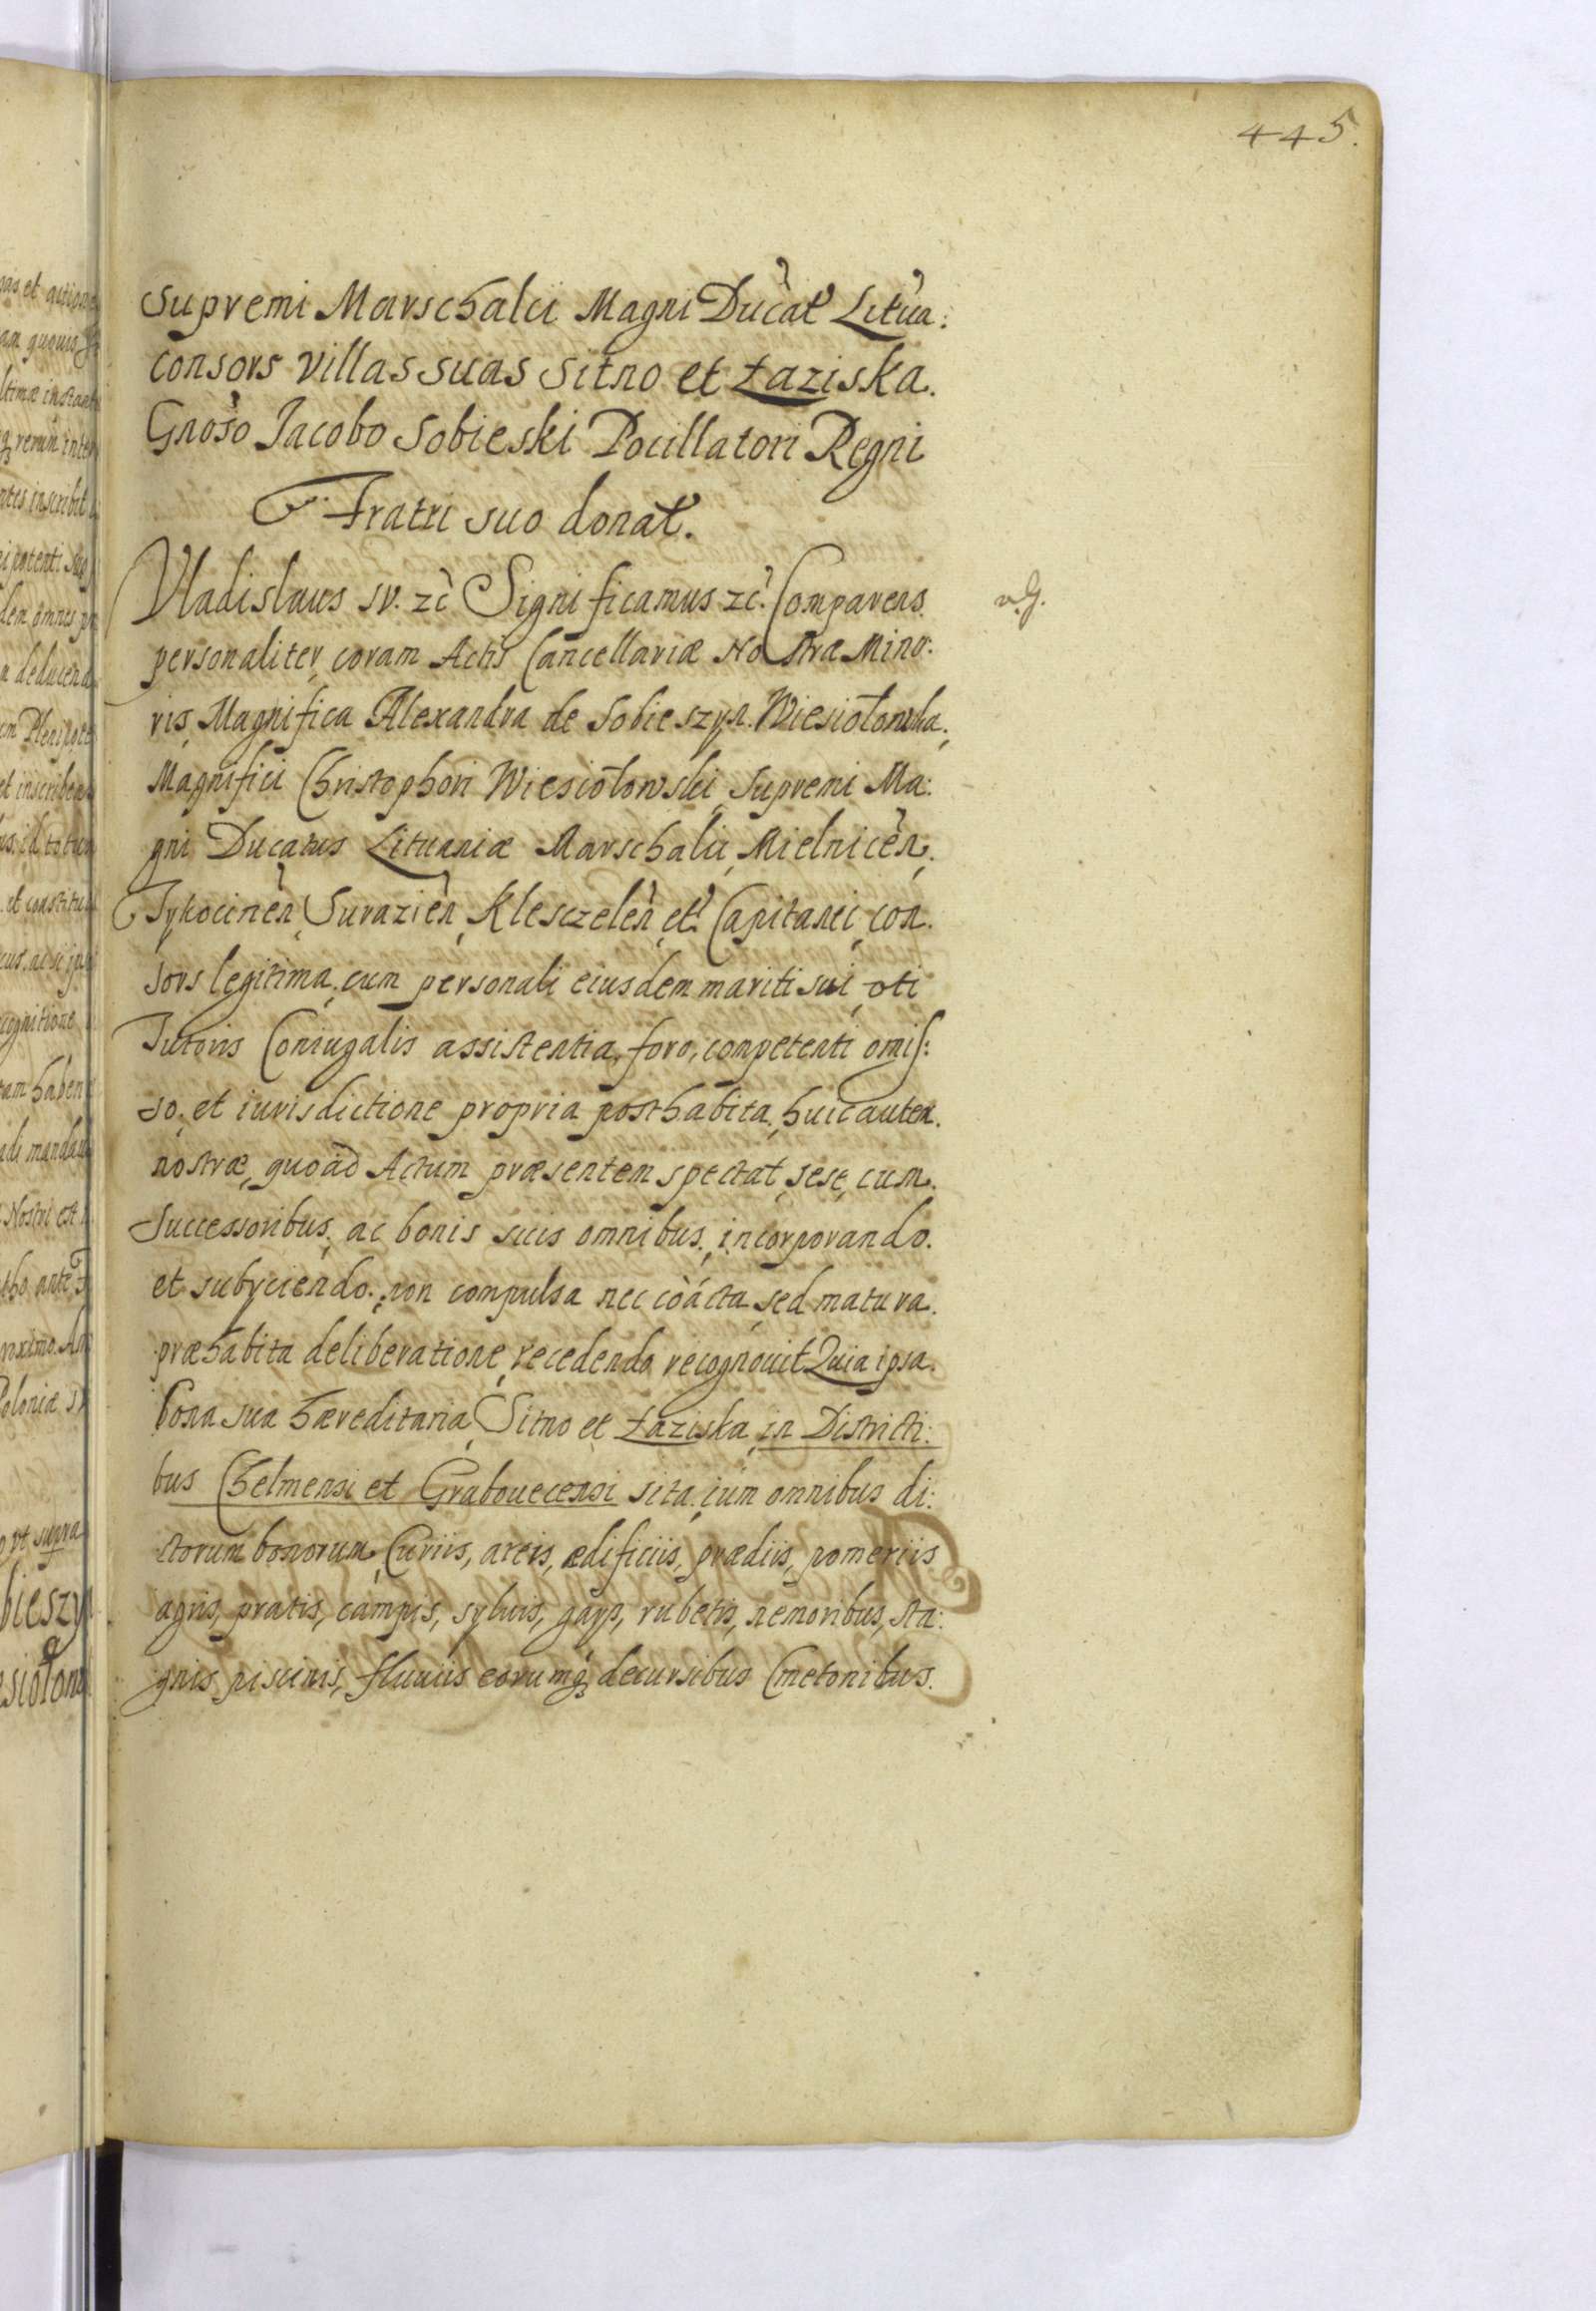 445.
Supremi Marschalii Magni Ducat Litua:
consors villas suas Sitno et Łaziska.
Gnoso Jacobo Sobieski Pocillatori Regni
Fratri suo donat.
Vladislaus IV. zc Significamus zc. Comparens
v. G.
personaliter, coram Actis Cancellariæ Nostræ Mino:
ris, Magnifica Alexandra de Sobieszyn. Wiesiołowska,
Magnifici Christophori Wiesiołowski, Supremi Ma:
gni Ducatus Lituaniæ Marschalii, Mielnicen,
Tykocinen, Surazien, Klesczelen, et Capitanei, con.
sors legitima, cum personali eiusdem mariti sui, vti
Tutoris Coniugalis assistentia, foro, competenti omis:
so, et iurisdictione propria posthabita, huic autem.
nostræ, quoad Actum præsentem spectat, sese, cum.
Successoribus, ac bonis suis omnibus, incorporando.
et subyciendo, non compulsa nec coacta, sed matura.
præhabita deliberatione, recedendo recognouit Quia ipsa.
bona sua hæreditaria, Sitno et Łaziska, in Districti:
bus Chelmensi et Grabouecensi sita, cum omnibus di:
ctorum bonorum, Curiis, areis, ædificiis, prædiis, pomeriis
agris, pratis, campis, syluis, gays, rubetis, nemoribus, sta:
gnis, piscinis, fluuiis eorumq; decursibus Cmetonibus.